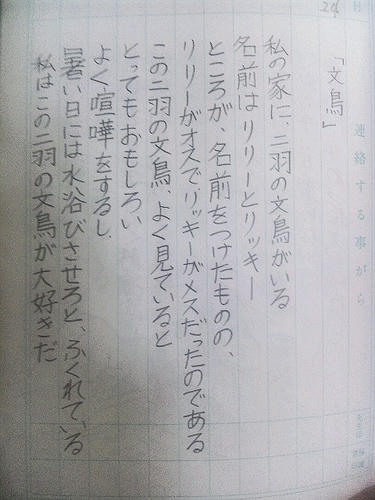 「文鳥」
私の家に、二羽の文鳥がいる
名前はリリーとリッキー
ところが、名前をつけたものの、
リリーがオスで、リッキーがメスだったのである
この二羽の文鳥、よく見ていると
とってもおもしろい
よく喧嘩をするし、
暑い日には水浴びさせろと、ふくれている
私はこの二羽の文鳥が大好きだ
連絡する事がら